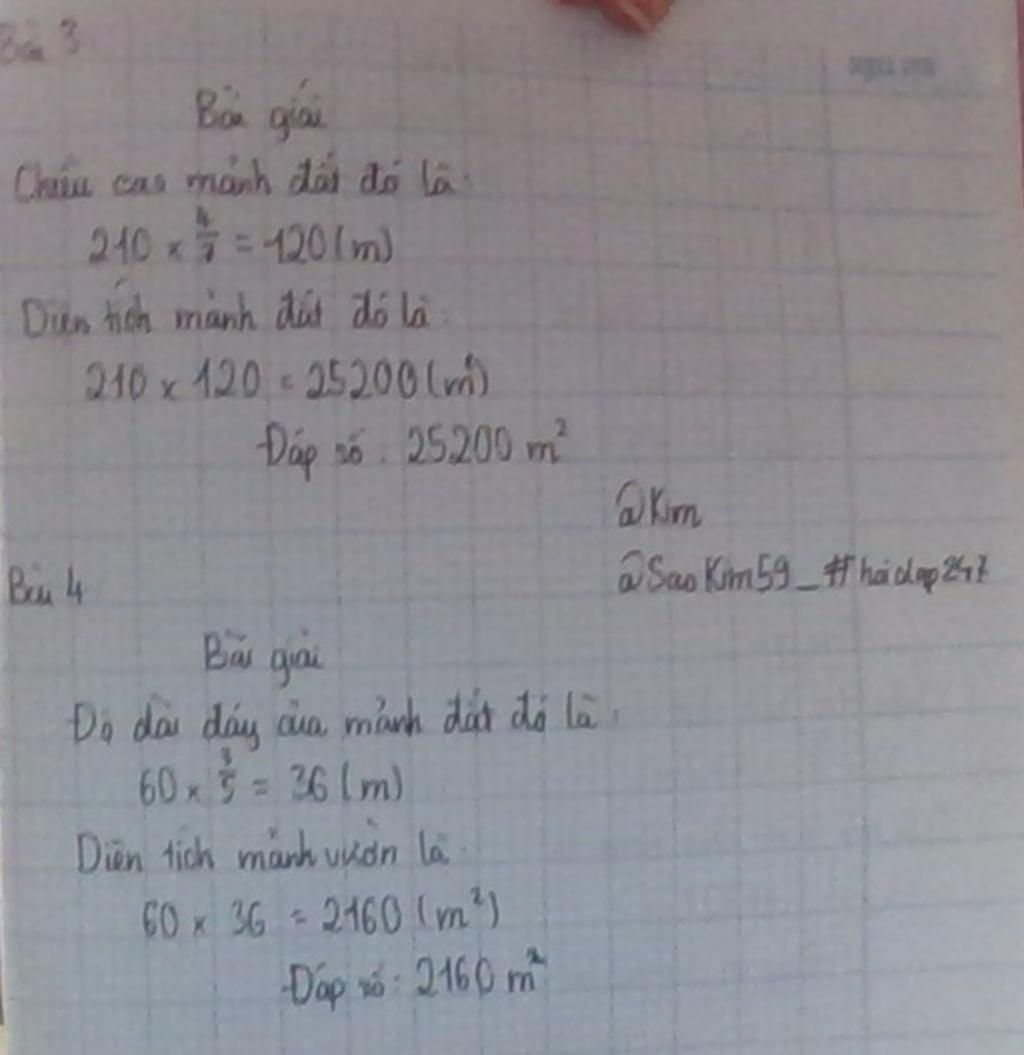 Bài 3
Bài giải
Chiều cao mảnh đất đó là:
210 × 4/7 = 120 (m)
Diện tích mảnh đất đó là:
210 × 120 = 25200 (m²)
Đáp số: 25200 m²
@Kim
@SaoKim59_#hoidap247
Bài 4
Bài giải
Độ dài đáy của mảnh đất đó là:
60 × 3/5 = 36 (m)
Diện tích mảnh vườn là:
60 × 36 = 2160 (m²)
Đáp số: 2160 m²